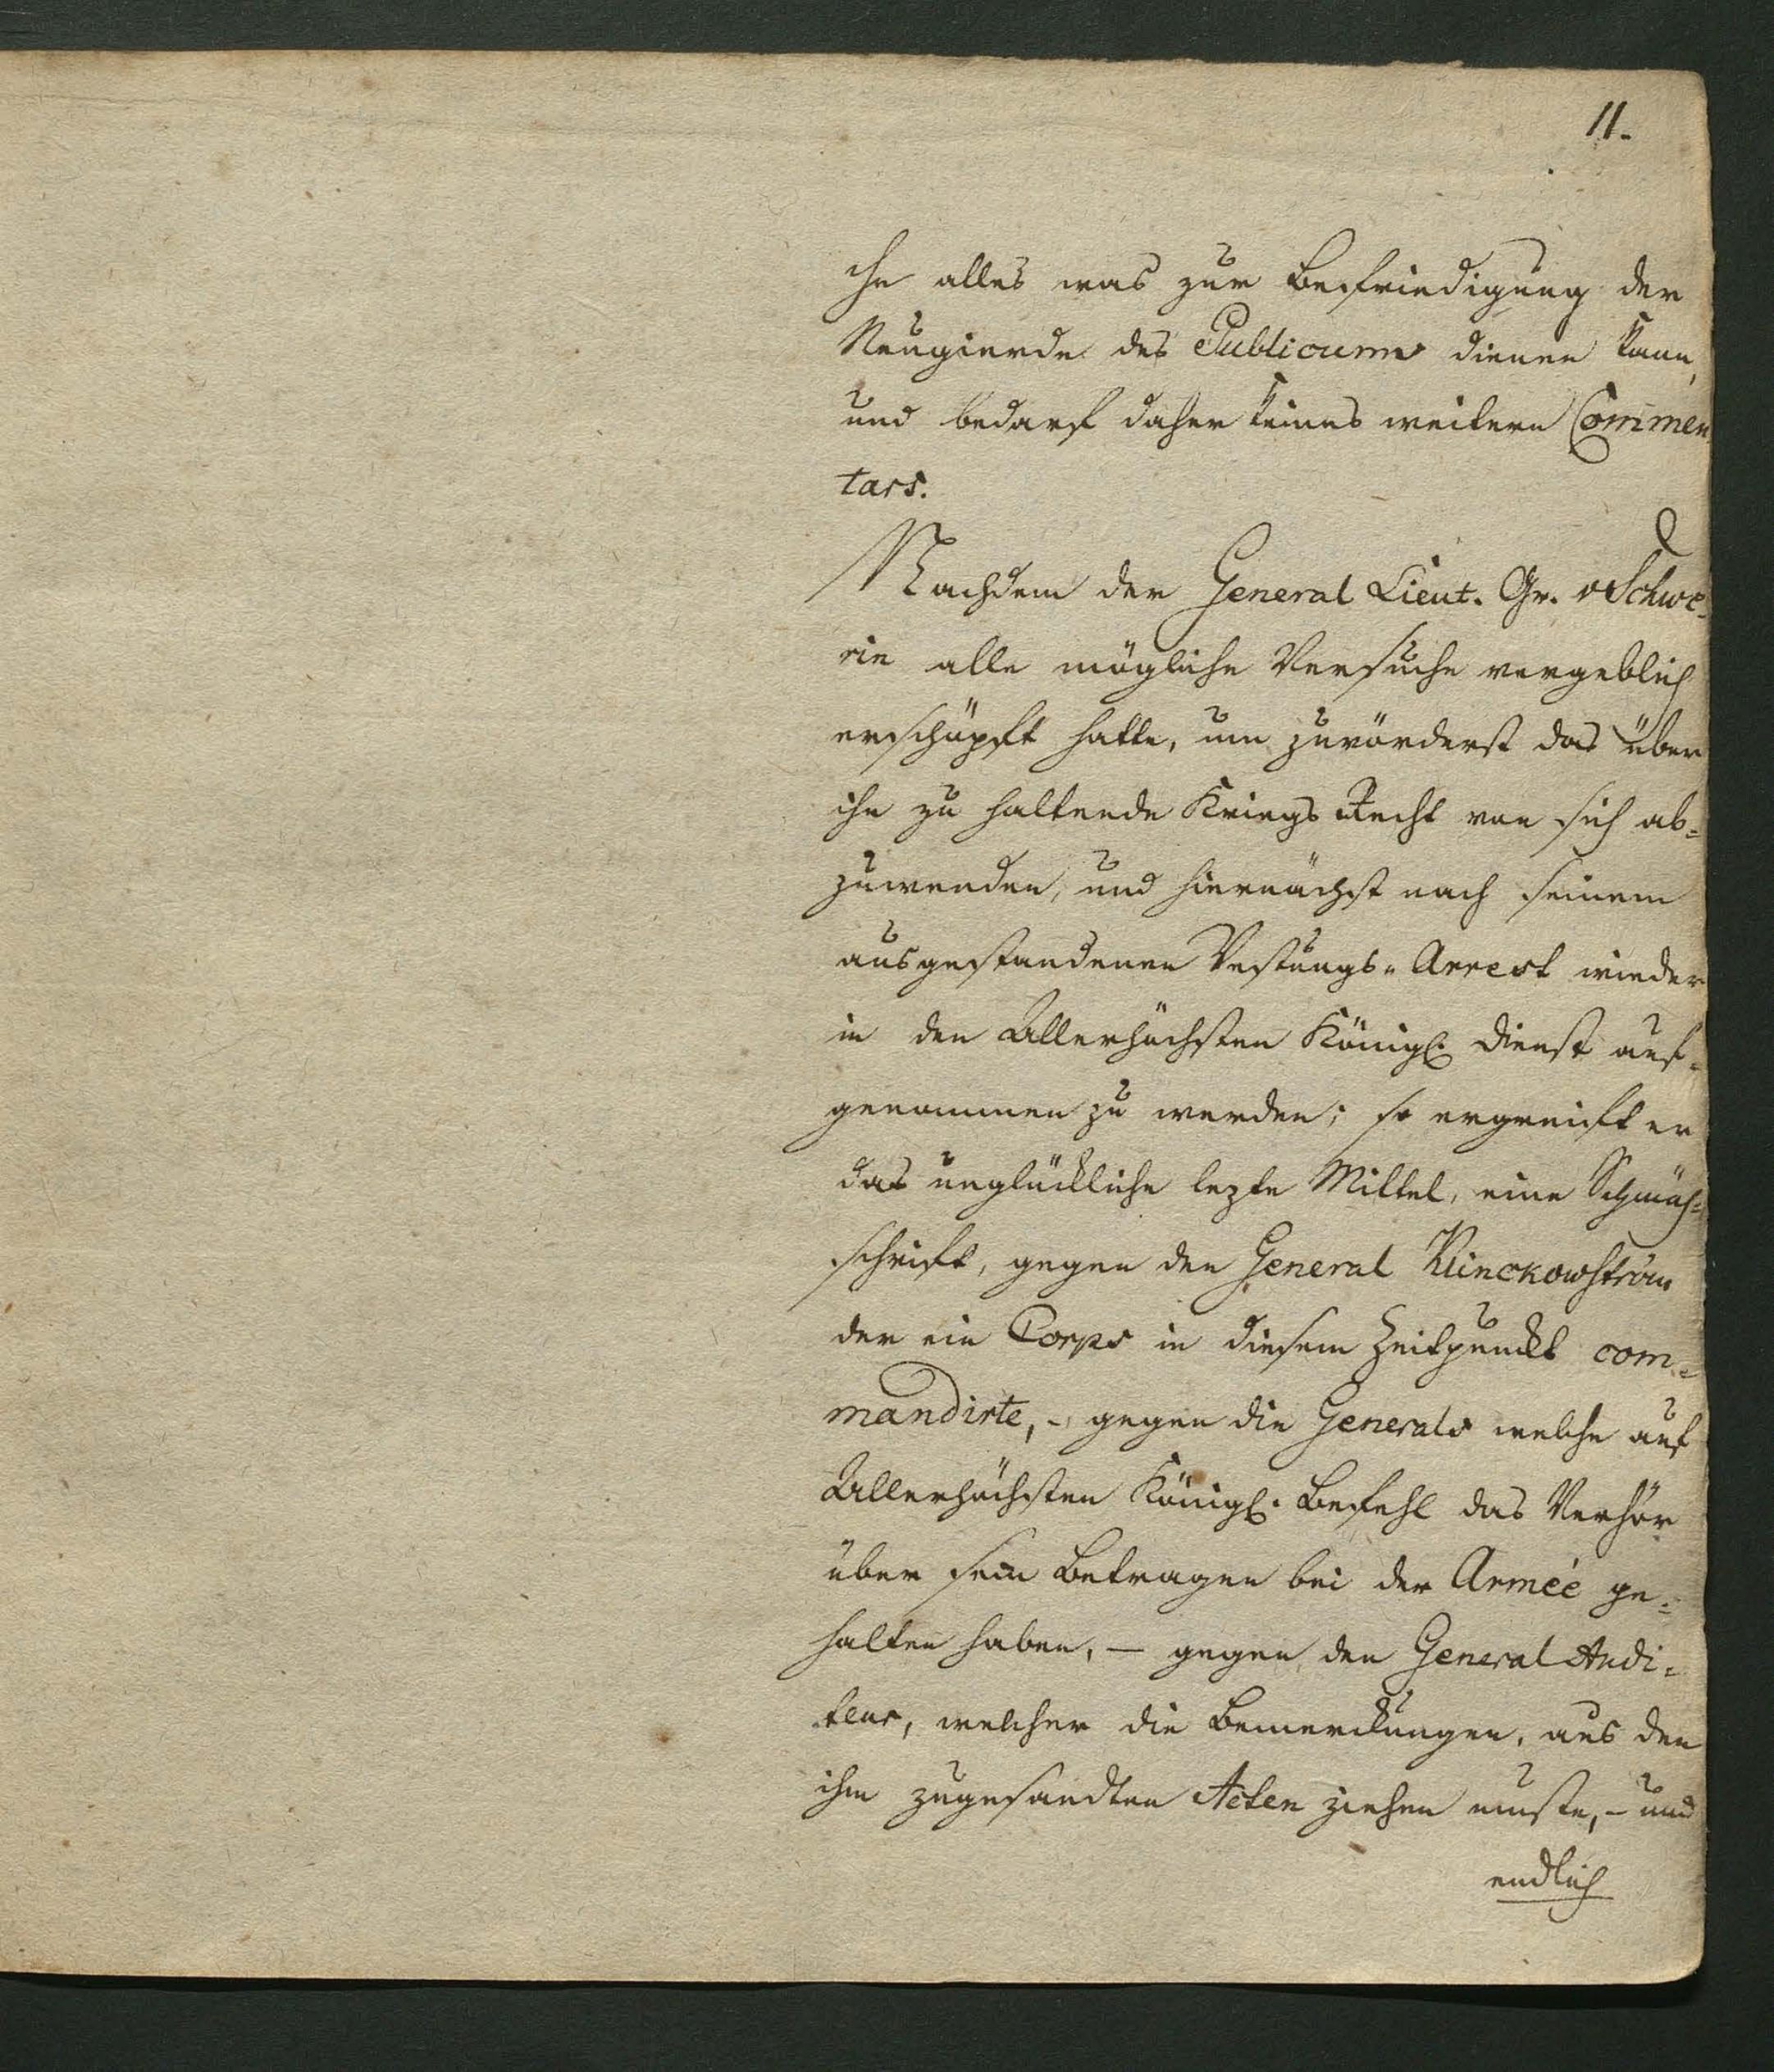 11.
che alles was zur Befriedigung der
Neugierde des Publicums dienen kann,
und bedarf daher keines weitern Commen
tars.
Nachdem der General Lieut. Gr. v Schwe-
rin alle mögliche Versuche vergeblich
erschöpft hatte, um zuvörderst das über
ihn zu haltende Kriegs Recht von sich ab=
zuwenden, und hiernächst nach seinem
ausgestandenen Vestungs-Arrest wieder
in den Allerhöchsten Königl. Dienst auf-
genommen zu werden; so ergreift er
das unglückliche lezte Mittel, eine Schmäh=
schrift, gegen den General Klinckowström
der ein Corps in diesem Zeitpunckt com-
mandirte, - gegen die Generals welche auf
Allerhöchsten Königl. Befehl das Verhör
über sein Betragen bei der Armée ge=
halten haben, — gegen den General Audi=
teur, welcher die Bemerckungen, aus den
ihm zugesandten Acten ziehen muste, - und
endlich